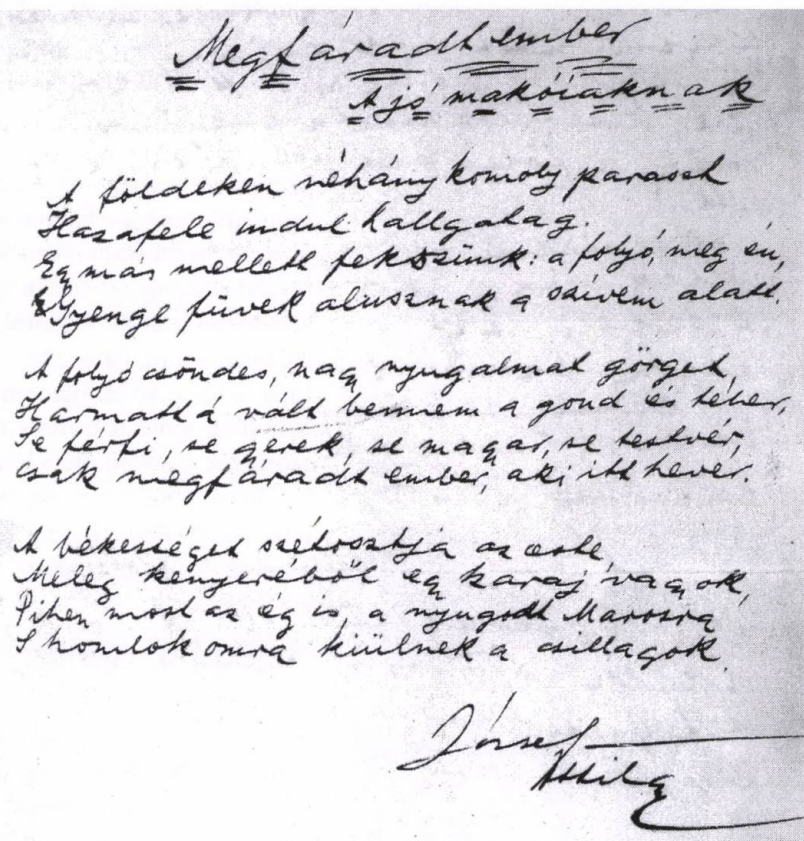 Megfáradt ember
A jó makóiaknak
A földeken néhány komoly paraszt
Hazafele indul hallgatag.
Egymás mellett fekszünk: a folyó, meg én,
Gyenge füvek alusznak a szívem alatt.
A folyó csöndes, nagy nyugalmat görget,
Harmattá vált bennem a gond és téher,
Se férfi, se gyerek, se magyar, se testvér,
csak megfáradt ember, aki itt hever.
A békességet szétosztja az este,
Meleg kenyeréből egy karaj vagyok,
Pihen most az ég is, a nyugodt Marosra
S homlokomra kiülnek a csillagok.
József
Attila